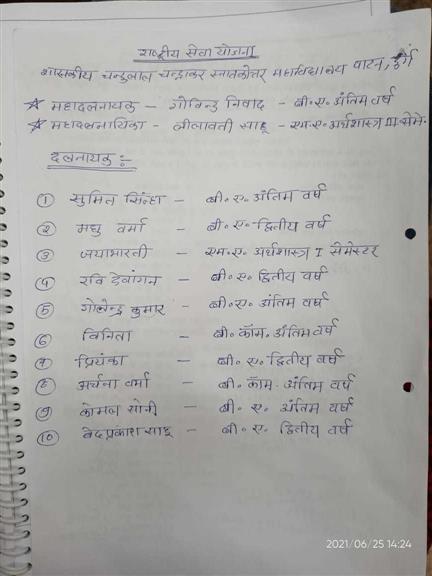 राष्ट्रीय सेवा योजना
शासकीय चन्दुलाल चन्द्राकर स्नातकोत्तर महाविद्यालय पाटन, दुर्ग
☆ महादलनायक - गोविन्द निषाद - बी॰ए॰ अंतिम वर्ष
☆ महादलनायिका - लीलावती साहू - एम॰ए॰ अर्थशास्त्र III सेमे॰
दलनायक :-
① सुमित सिंहा - बी॰ए॰ अंतिम वर्ष
② मधु वर्मा - बी॰ए॰ द्वितीय वर्ष
③ जयाभारती - एम॰ए॰ अर्थशास्त्र I सेमेस्टर
④ रवि देवांगन - बी॰ए॰ द्वितीय वर्ष
⑤ गोलेन्द्र कुमार - बी॰ए॰ अंतिम वर्ष
⑥ विनिता - बी॰कॉम॰ अंतिम वर्ष
⑦ प्रियंका - बी॰ए॰ द्वितीय वर्ष
⑧ अर्चना वर्मा - बी॰कॉम॰ अंतिम वर्ष
⑨ कोमल सोनी - बी॰ए॰ अंतिम वर्ष
⑩ वेदप्रकाश साहू - बी॰ए॰ द्वितीय वर्ष
2021/06/25 14:24